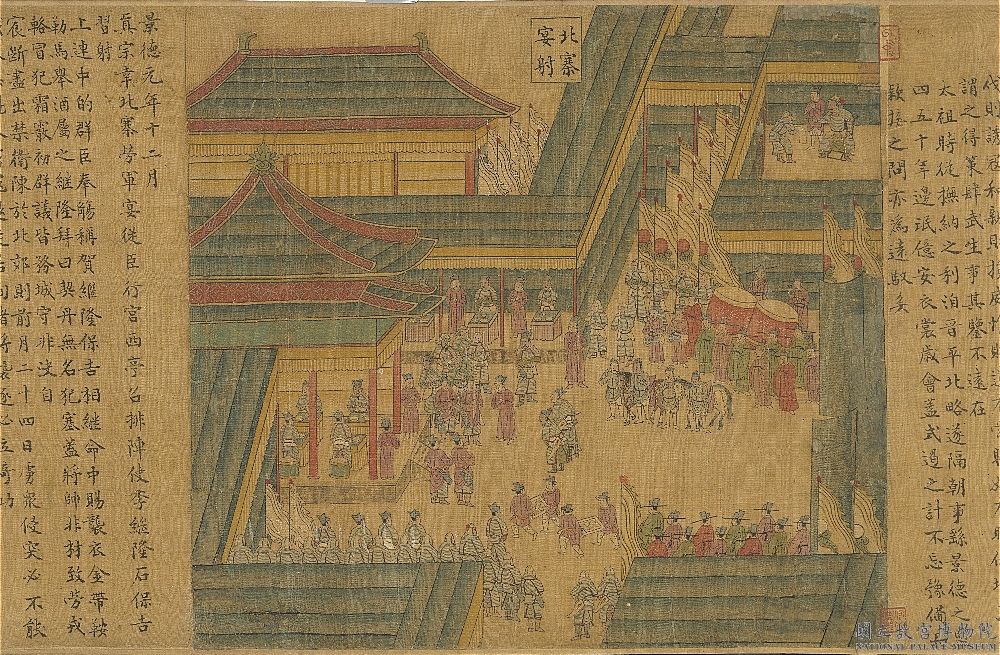 謂之得策肆武生事其鑒不遠在
太祖時從撫納之利洎晉平北略遂隔朝事緜景德之
四五十年邊氓億安衣裳歲會蓋式遏之計不忘豫備
欵接之間亦為遠馭矣
北寨
宴射
景德元年十二月
真宗幸北寨勞軍宴從臣行宮西亭召排陣使李繼隆石保吉
習射
上連中的群臣奉觴稱賀繼隆保吉相繼命中賜襲衣金帶鞍
勒馬舉酒屬之繼隆拜曰契丹無名犯塞蓋將帥非材致勞戎
輅冒犯霜霰初群議皆務城守非決自
宸斷盡出禁衛陳於北郊則前月二十四日虜眾侵突必不能
國立故宮博物院
NATIONAL PALACE MUSEUM